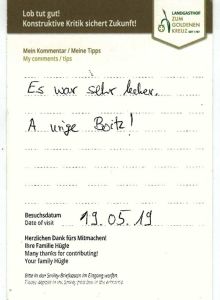 Lob tut gut!
Konstruktive Kritik sichert Zukunft!
LANDGASTHOF
ZUM
GOLDENEN
KREUZ
Mein Kommentar / Meine Tipps
My comments / tips
Es war sehr lecker.
A urige
Besuchsdatum
Date of visit
19.05.19
Herzlichen Dank fürs Mitmachen!
Ihre Familie Hügle
Many thanks for contributing!
Your family Hügle
Bitte in den Smiley-Briefkasten im Eingang werfen.
Please deposit in the Smiley post box in the entrance.